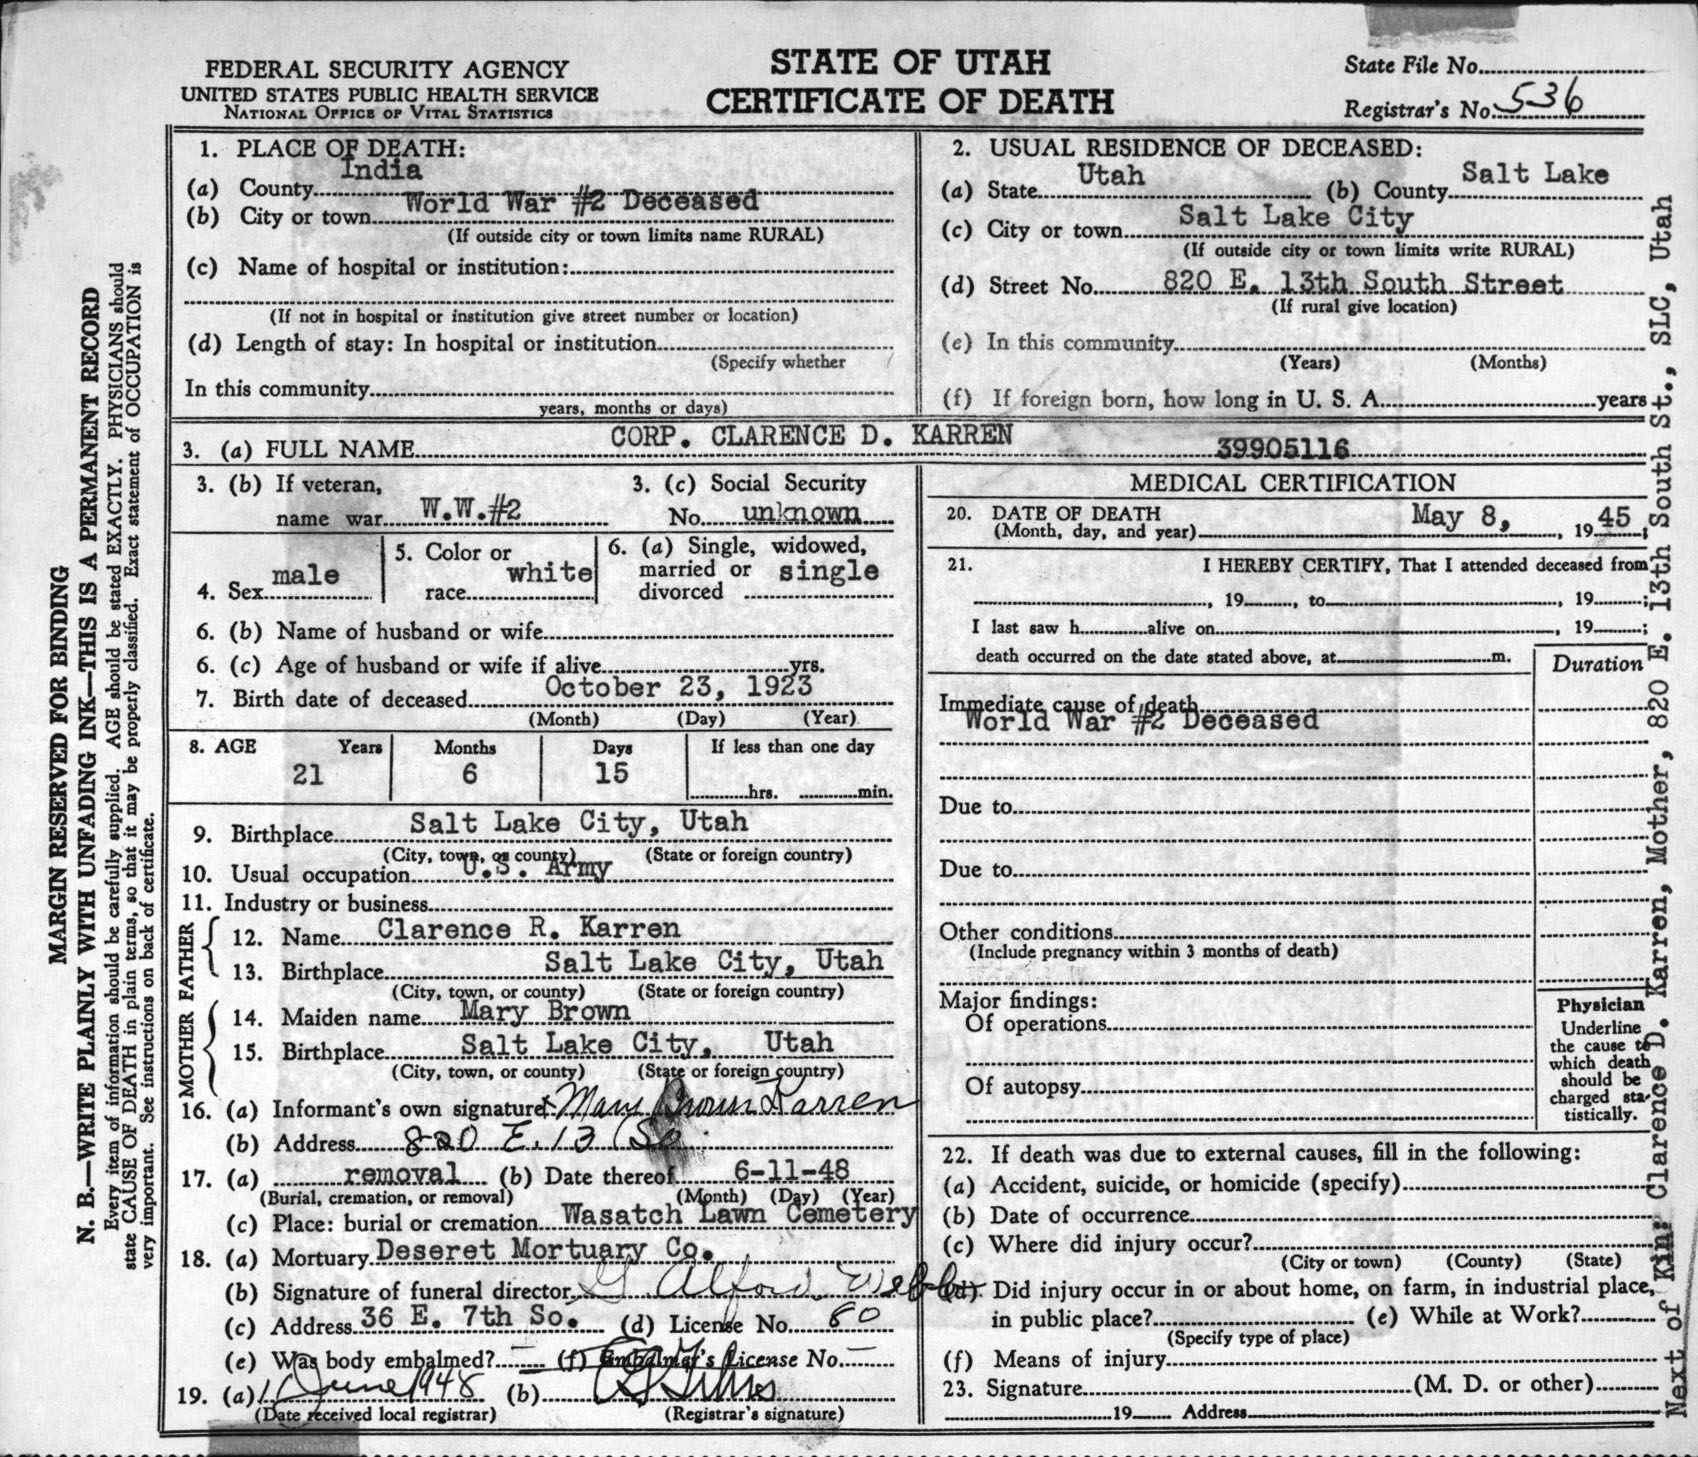 FEDERAL SECURITY AGENCY
UNITED STATES PUBLIC HEALTH SERVICE
NATIONAL OFFICE OF VITAL STATISTICS
STATE OF UTAH
CERTIFICATE OF DEATH
State File No.
Registrar's No. 536
1. PLACE OF DEATH:
(a) County India
(b) City or town World War #2 Deceased
(If outside city or town limits name RURAL)
(c) Name of hospital or institution:
(If not in hospital or institution give street number or location)
(d) Length of stay: In hospital or institution
(Specify whether
In this community
years, months or days)
2. USUAL RESIDENCE OF DECEASED:
(a) State Utah (b) County Salt Lake
(c) City or town Salt Lake City
(If outside city or town limits write RURAL)
(d) Street No. 820 E. 13th South Street
(If rural give location)
(e) In this community
(Years) (Months)
(f) If foreign born, how long in U. S. A. years
3. (a) FULL NAME CORP. CLARENCE D. KARREN 39905116
3. (b) If veteran,
name war W.W.#2
3. (c) Social Security
No. unknown
4. Sex male
5. Color or
race white
6. (a) Single, widowed,
married or single
divorced
6. (b) Name of husband or wife
6. (c) Age of husband or wife if alive yrs.
7. Birth date of deceased October 23, 1923
(Month) (Day) (Year)
8. AGE Years Months Days If less than one day
21 6 15 hrs. min.
9. Birthplace Salt Lake City, Utah
(City, town, or county) (State or foreign country)
10. Usual occupation U.S. Army
11. Industry or business
FATHER
12. Name Clarence R. Karren
13. Birthplace Salt Lake City, Utah
(City, town, or county) (State or foreign country)
MOTHER
14. Maiden name Mary Brown
15. Birthplace Salt Lake City, Utah
(City, town, or county) (State or foreign country)
16. (a) Informant's own signature x Mary Brown Karren
(b) Address 820 E. 13 So
17. (a) removal (b) Date thereof 6-11-48
(Burial, cremation, or removal) (Month) (Day) (Year)
(c) Place: burial or cremation Wasatch Lawn Cemetery
18. (a) Mortuary Deseret Mortuary Co.
(b) Signature of funeral director G Alford Webb
(c) Address 36 E. 7th So. (d) License No. 80
(e) Was body embalmed? — (f) Embalmer's License No. —
19. (a) 11 June 1948 (b)
(Date received local registrar) (Registrar's signature)
MEDICAL CERTIFICATION
20. DATE OF DEATH
(Month, day, and year) May 8, 1945;
21. I HEREBY CERTIFY, That I attended deceased from
, 19 , to , 19 ;
I last saw h alive on , 19 ;
death occurred on the date stated above, at m.
Duration
Immediate cause of death
World War #2 Deceased
Due to
Due to
Other conditions
(Include pregnancy within 3 months of death)
Major findings:
Of operations
Of autopsy
Physician
Underline
the cause to
which death
should be
charged sta-
tistically.
22. If death was due to external causes, fill in the following:
(a) Accident, suicide, or homicide (specify)
(b) Date of occurrence
(c) Where did injury occur?
(City or town) (County) (State)
(d) Did injury occur in or about home, on farm, in industrial place,
in public place? (e) While at Work?
(Specify type of place)
(f) Means of injury
23. Signature (M. D. or other)
19 Address
MARGIN RESERVED FOR BINDING
N. B.—WRITE PLAINLY WITH UNFADING INK—THIS IS A PERMANENT RECORD
Every item of information should be carefully supplied. AGE should be stated EXACTLY. PHYSICIANS should
state CAUSE OF DEATH in plain terms, so that it may be properly classified. Exact statement of OCCUPATION is
very important. See instructions on back of certificate.
Next of Kin: Clarence D. Karren, Mother, 820 E. 13th South St., SLC, Utah